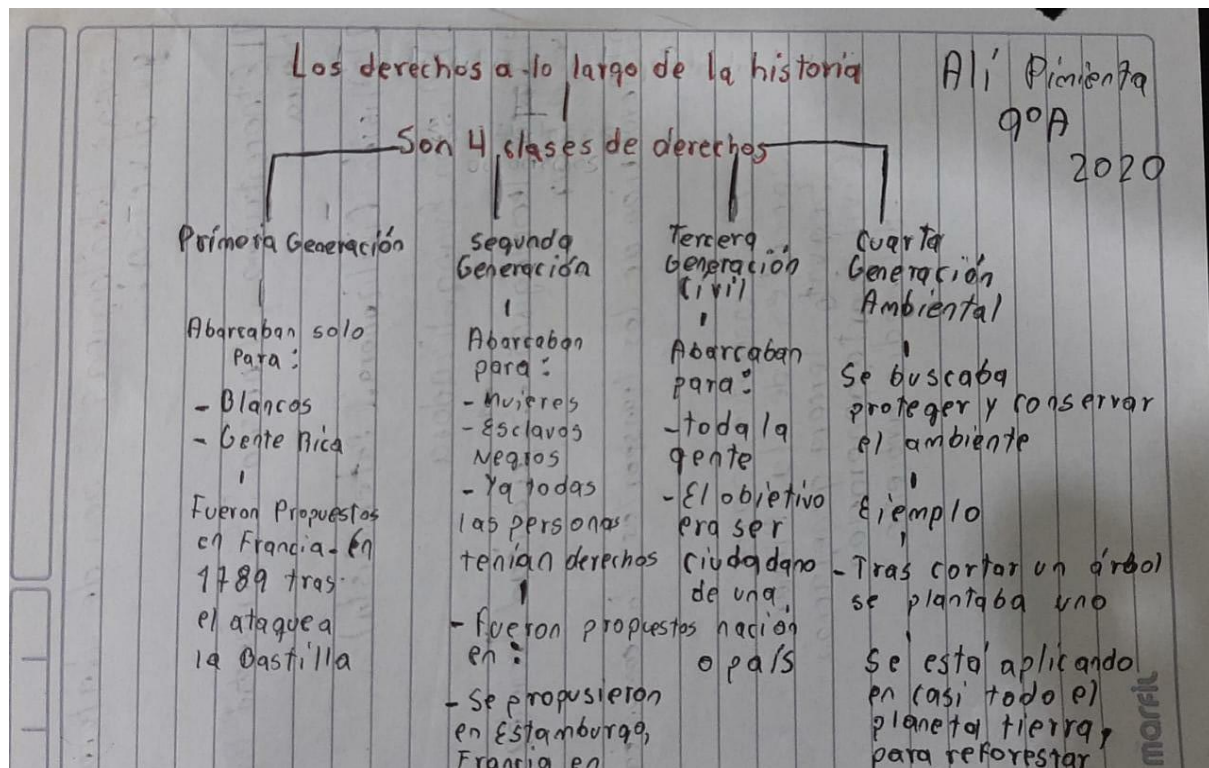 Los derechos a lo largo de la historia
Alí Pimienta
9ºA
2020
Son 4 clases de derechos
Primera Generación
Abarcaban solo
Para:
- Blancos
- Gente Rica
Fueron Propuestos
en Francia. En
1789 tras
el ataque a
la Bastilla
Segunda
Generación
Abarcaban
para:
- Mujeres
- Esclavos
Negros
- Ya todas
las personas
tenían derechos
- Fueron propuestos
en:
- Se propusieron
en Estamburgo,
Francia en
Tercera
Generación
Civil
Abarcaban
para:
- toda la
gente
- El objetivo
era ser
ciudadano
de una
nación
o país
Cuarta
Generación
Ambiental
Se buscaba
proteger y conservar
el ambiente
Ejemplo
- Tras cortar un árbol
se plantaba uno
Se está aplicando
en casi todo el
planeta tierra,
para reforestar
marfil